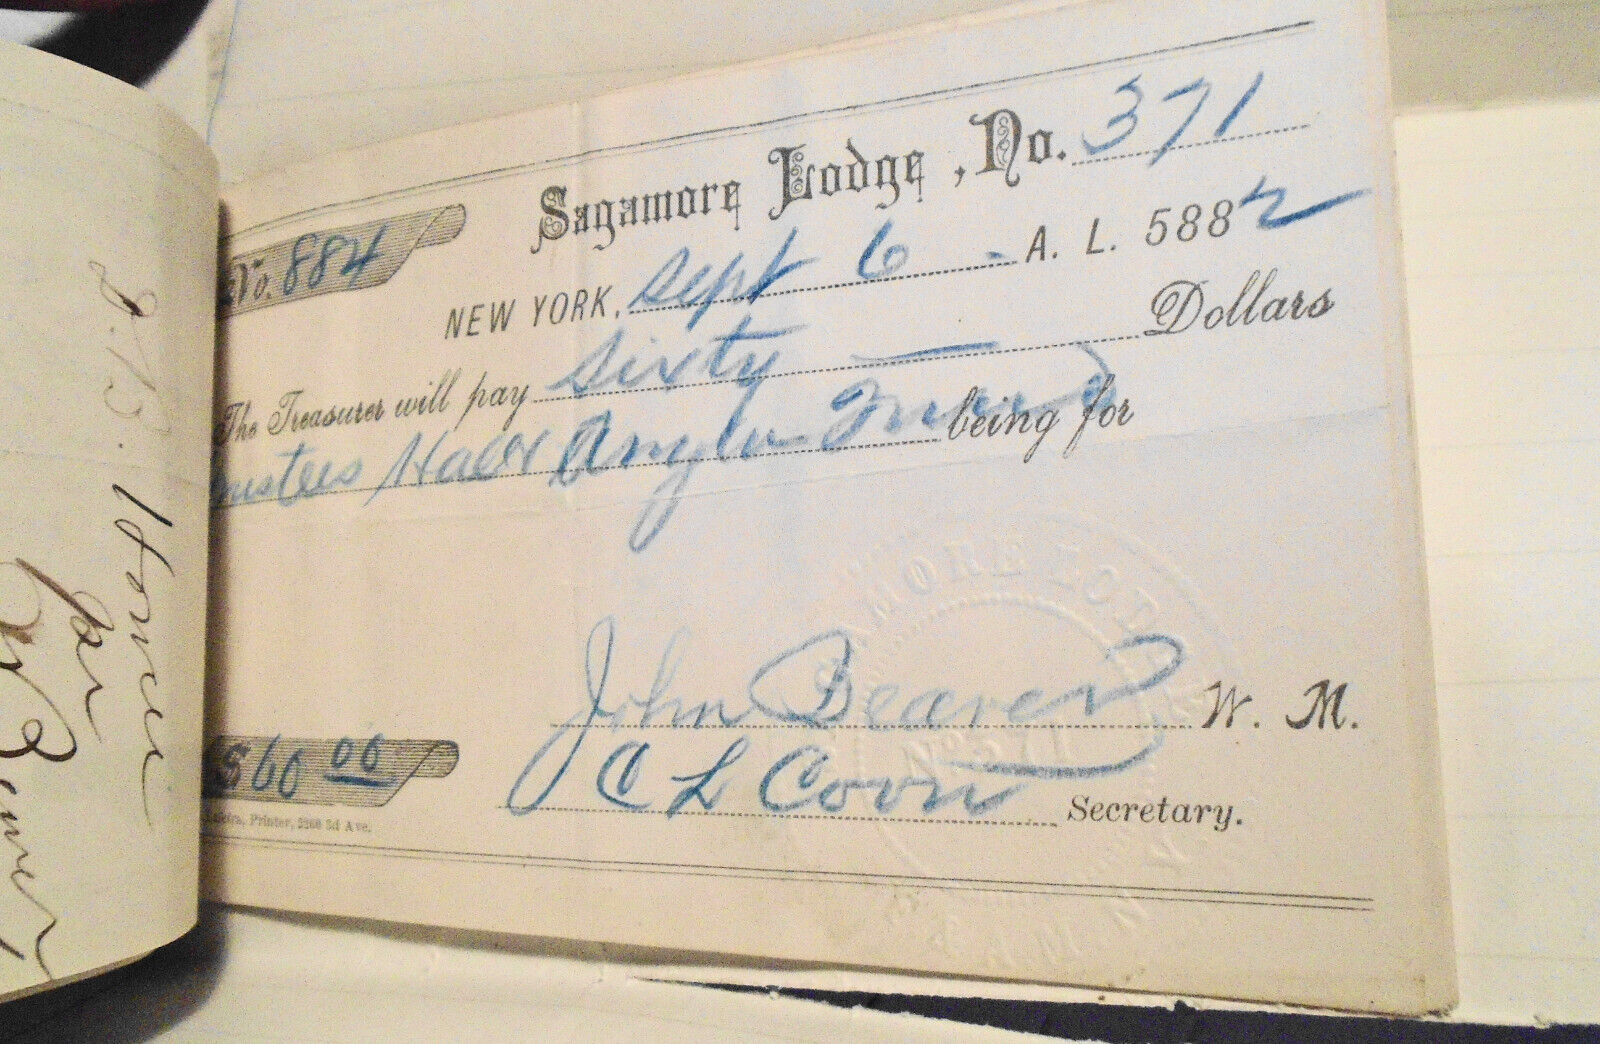 Sagamore Lodge, No. 371
No. 884
NEW YORK, Sept 6 - A. L. 5882
The Treasurer will pay Sixty — Dollars
Trustees Hall being for
John Beaver W. M.
$60 00
C L Coon Secretary.
Printer, 2260 3d Ave.